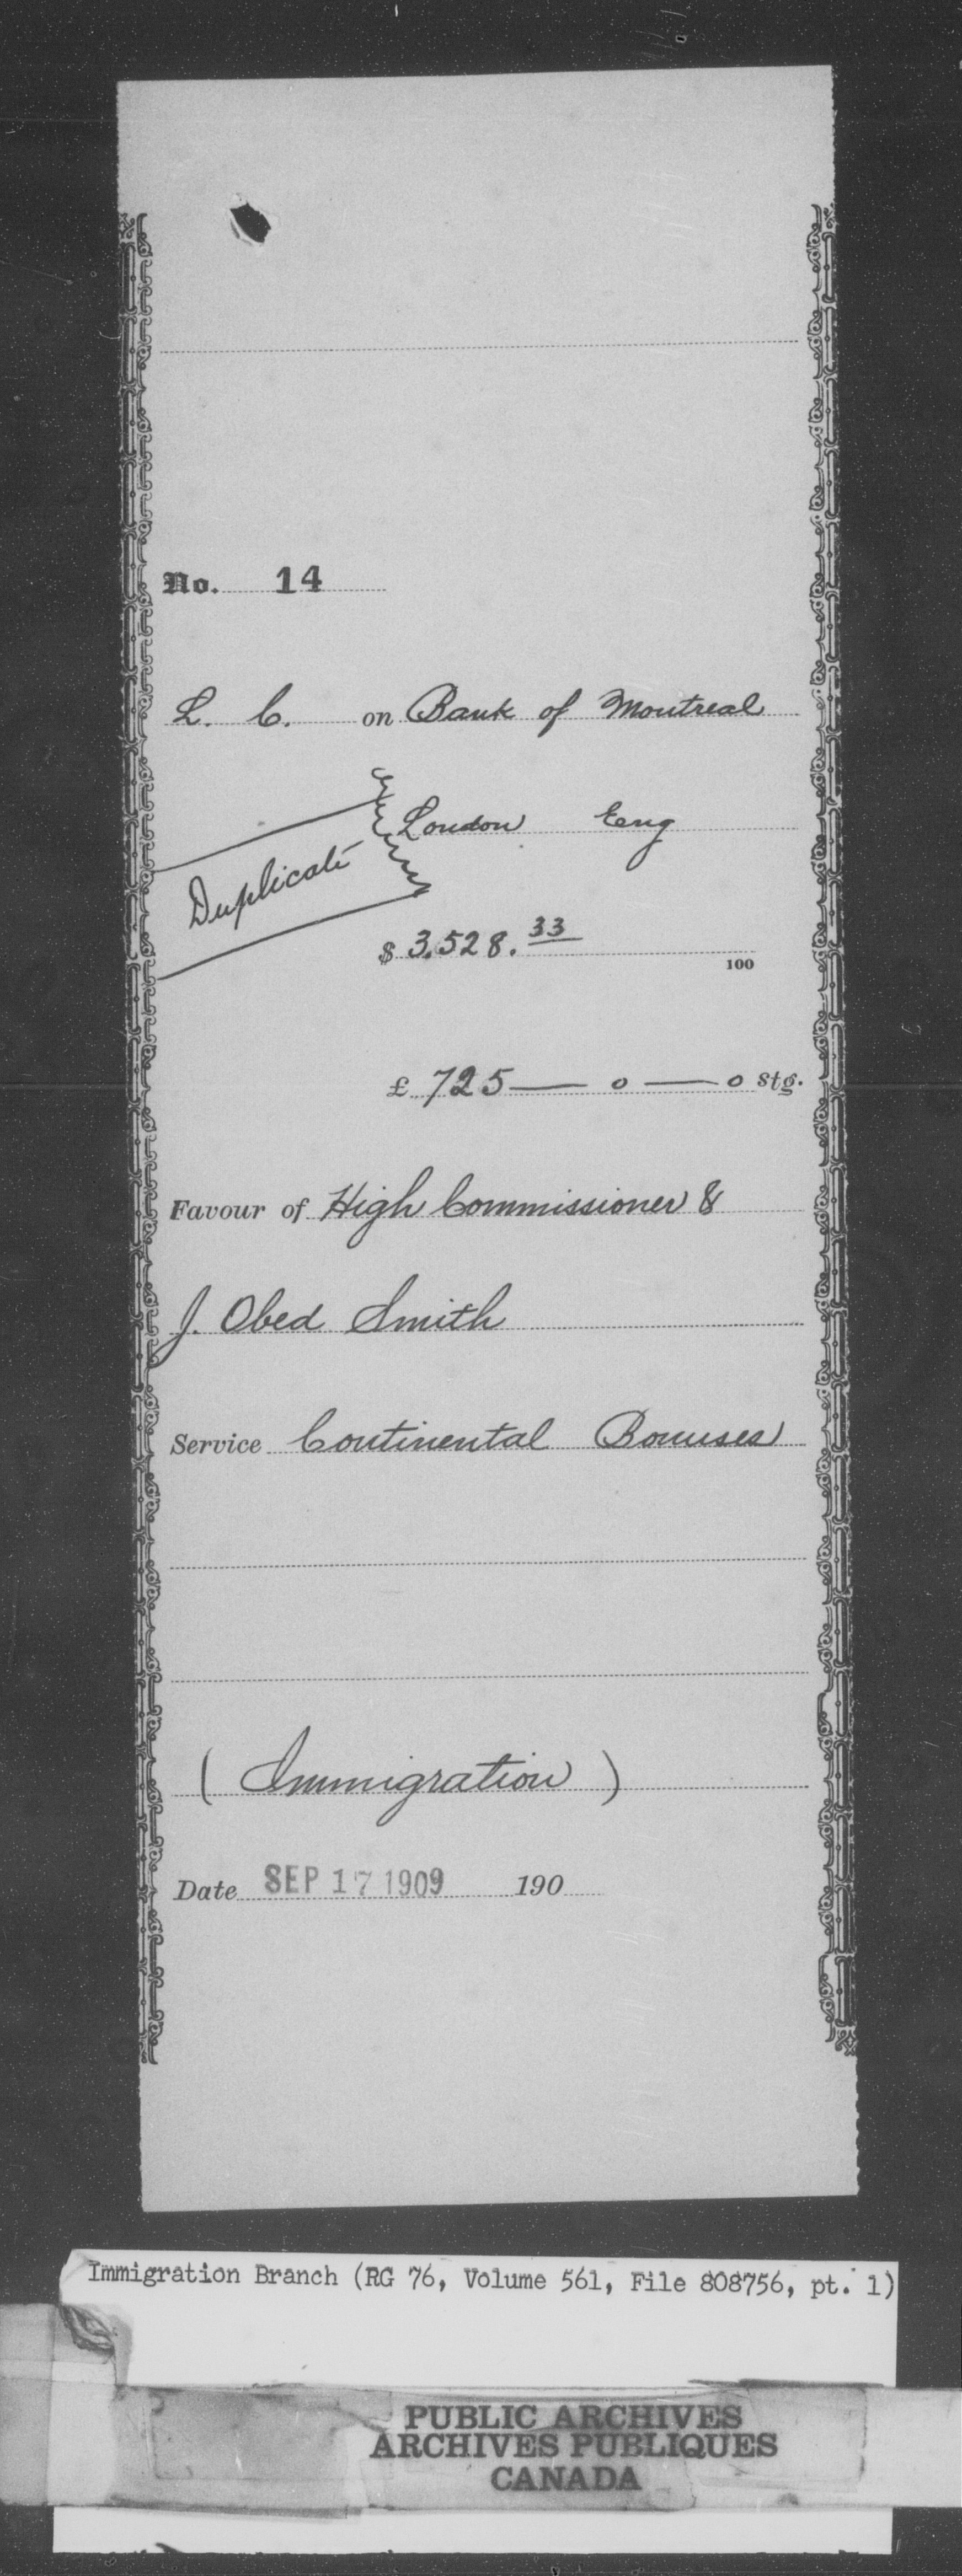 No. 14
L. C. on Bank of Montreal
London Eng
Duplicate
$ 3,528. 33
100
£ 725 — 0 — 0 stg.
Favour of High Commissioner &
J. Obed Smith
Service Continental Bonuses
( Immigration )
Date SEP 17 1909 190
Immigration Branch (RG 76, Volume 561, File 808756, pt. 1)
PUBLIC ARCHIVES
ARCHIVES PUBLIQUES
CANADA